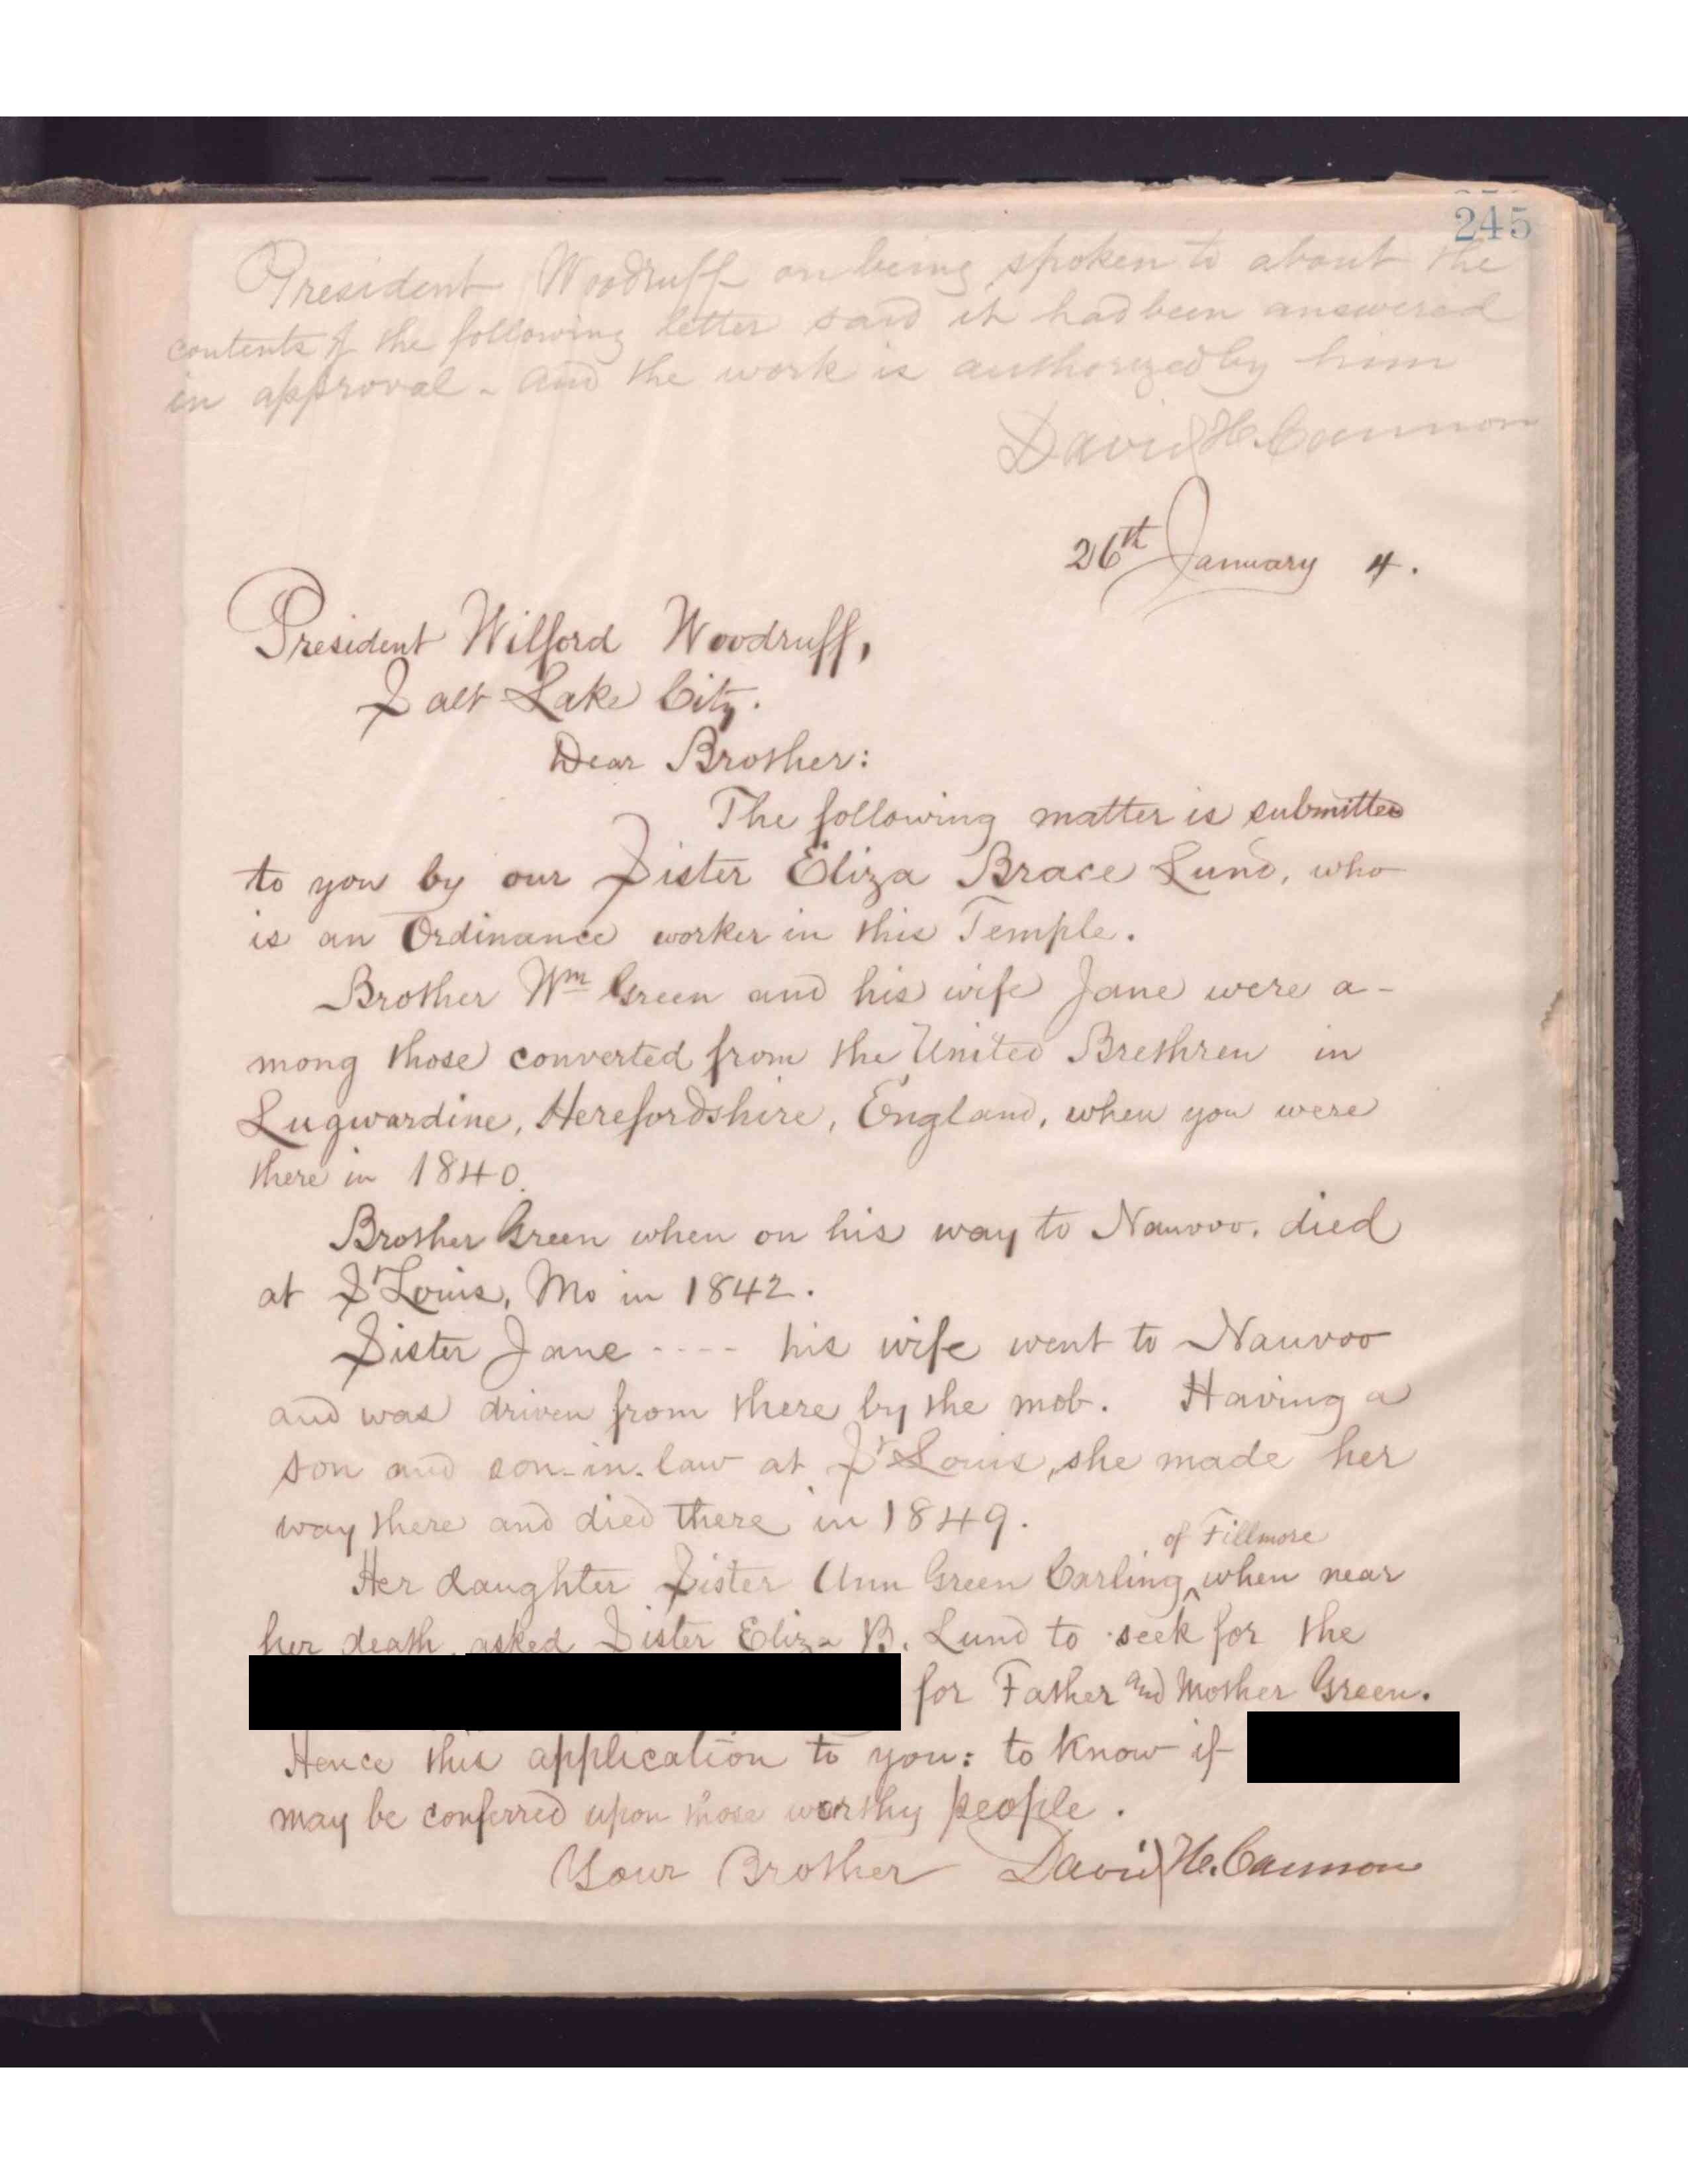 245
President Woodruff on being spoken to about the
contents of the following letter said it had been answered
in approval - and the work is authorized by him
David H. Cannon
26th January 4.
President Wilford Woodruff,
Salt Lake City.
Dear Brother:
The following matter is submitted
to you by our Sister Eliza Brace Lund, who
is an Ordinance worker in this Temple.
Brother Wm Green and his wife Jane were a-
mong those converted from the United Brethren in
Lugwardine, Herefordshire, England, when you were
there in 1840.
Brother Green when on his way to Nauvoo, died
at St Louis, Mo in 1842.
Sister Jane ---- his wife went to Nauvoo
and was driven from there by the mob. Having a
son and son-in-law at St Louis, she made her
way there and died there in 1849.
of Fillmore
Her daughter Sister Ann Green Carling ^ when near
her death, asked Sister Eliza B. Lund to seek for the
for Father and Mother Green.
Hence this application to you: to know if
may be conferred upon those worthy people.
Your Brother David H. Cannon